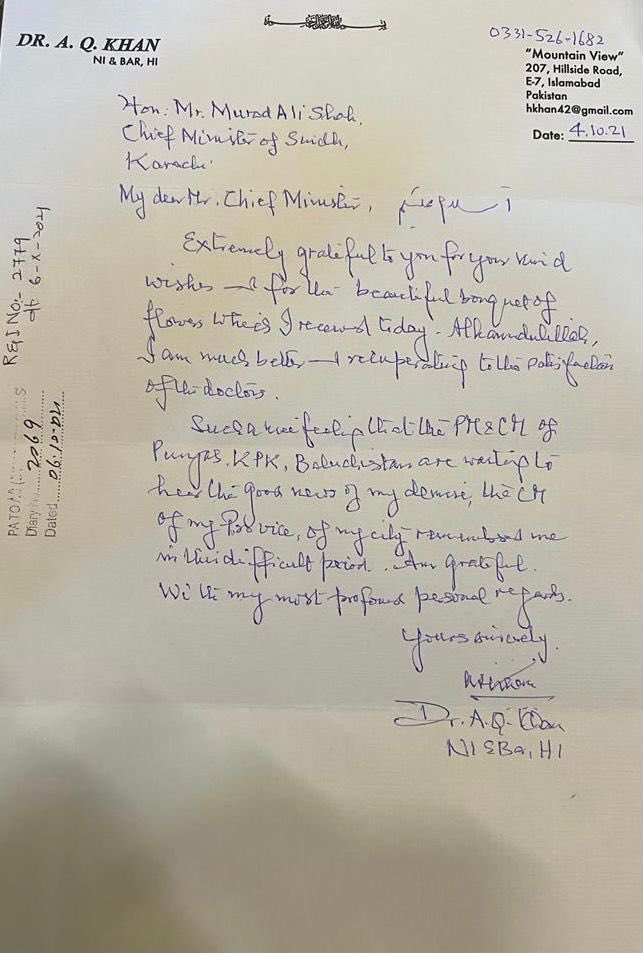 DR. A. Q. KHAN
NI & BAR, HI
0331-526-1682
"Mountain View"
207, Hillside Road,
E-7, Islamabad
Pakistan
hkhan42@gmail.com
Date: 4.10.21
Hon: Mr. Murad Ali Shah,
Chief Minister of Sindh,
Karachi.
My dear Mr. Chief Minister,
Extremely grateful to you for your kind
wishes & for the beautiful bouquet of
flowers which I received today. Alhamdulillah,
I am much better & recuperating to the satisfaction
of the doctors.
Such a nice feeling that the PM & CM of
Punjab, KPK, Baluchistan are waiting to
hear the good news of my demise, the CM
of my Province, of my city remembered me
in this difficult period. Am grateful.
With my most profound personal regards.
Yours sincerely.
Dr. A. Q. Khan
NI & Bar, HI
R&I No:- 2779
dt: 6-X-2021
Diary No. 2069
Dated 06.10.021